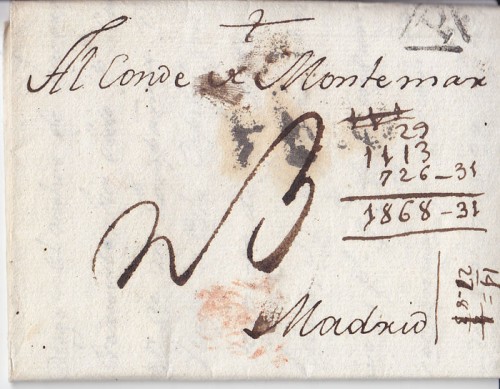 Al Conde de Montemar
29
1113
726-31
1868-31
Madrid
14